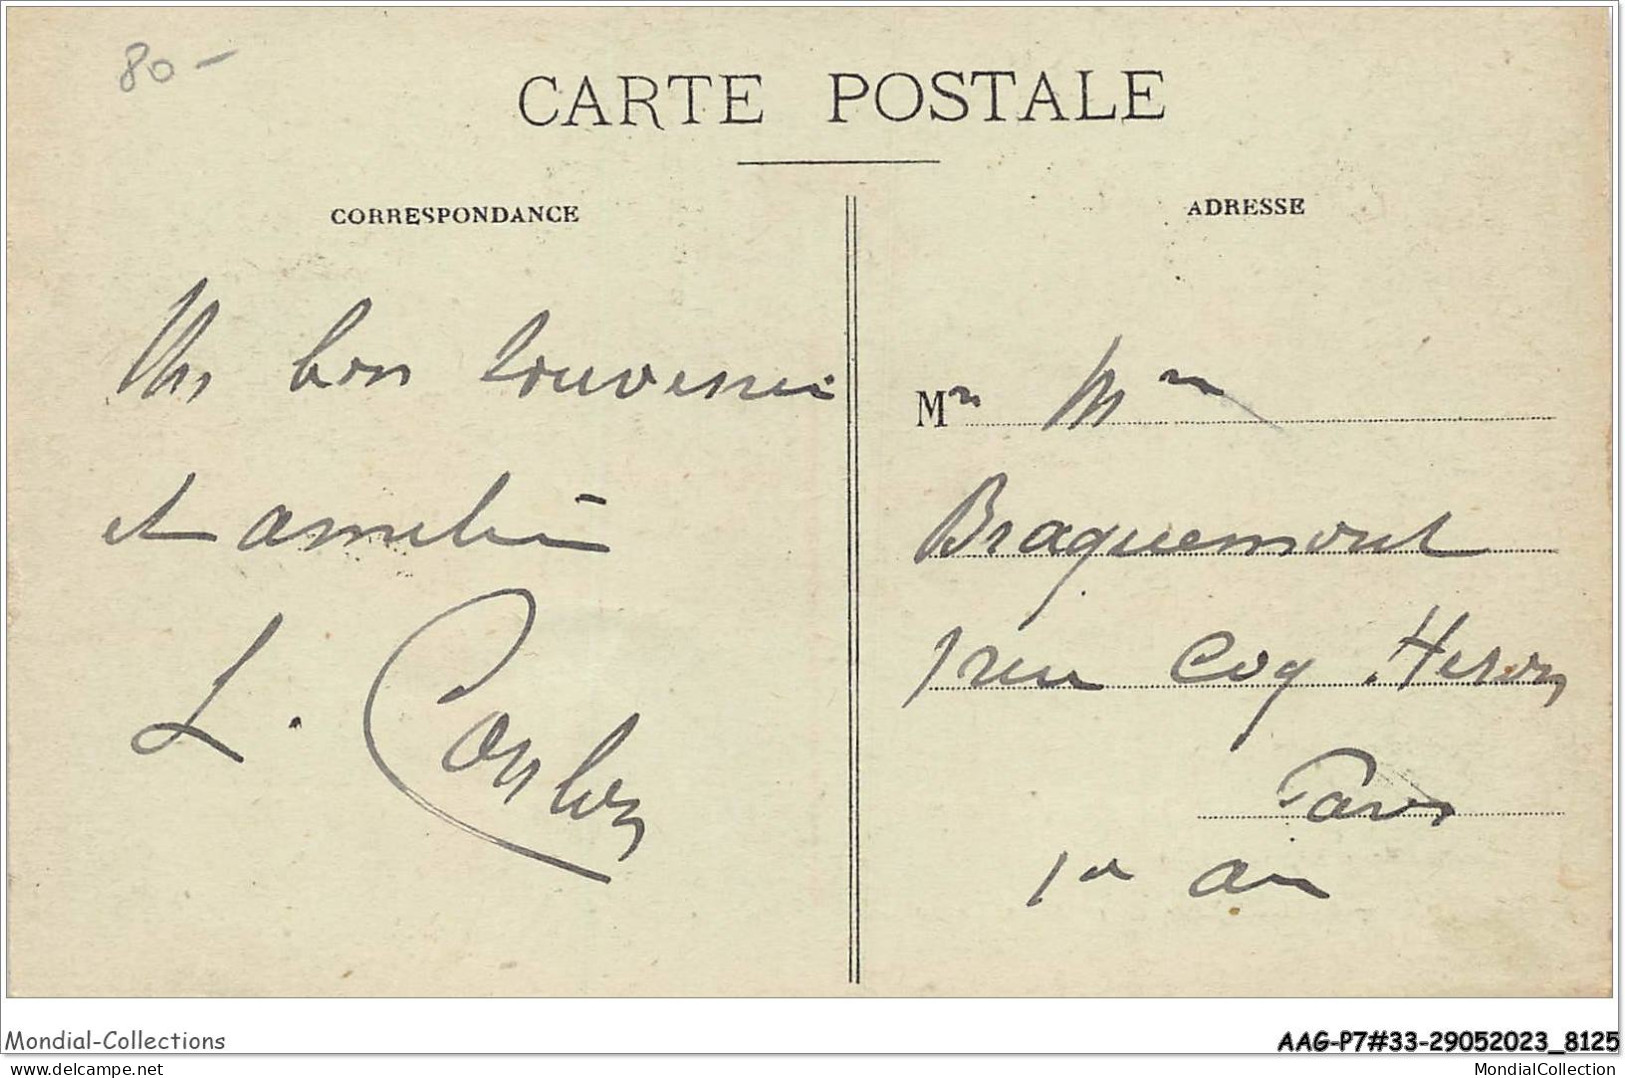 80 -
CARTE POSTALE
CORRESPONDANCE
Un bon souvenir
et amitié
L.
ADRESSE
M
Braquemont
1 rue Coq Heron
Paris
1er arr
Mondial-Collections
AAG-P7#33-29052023_8125
Delcampe.net
MondialCollection